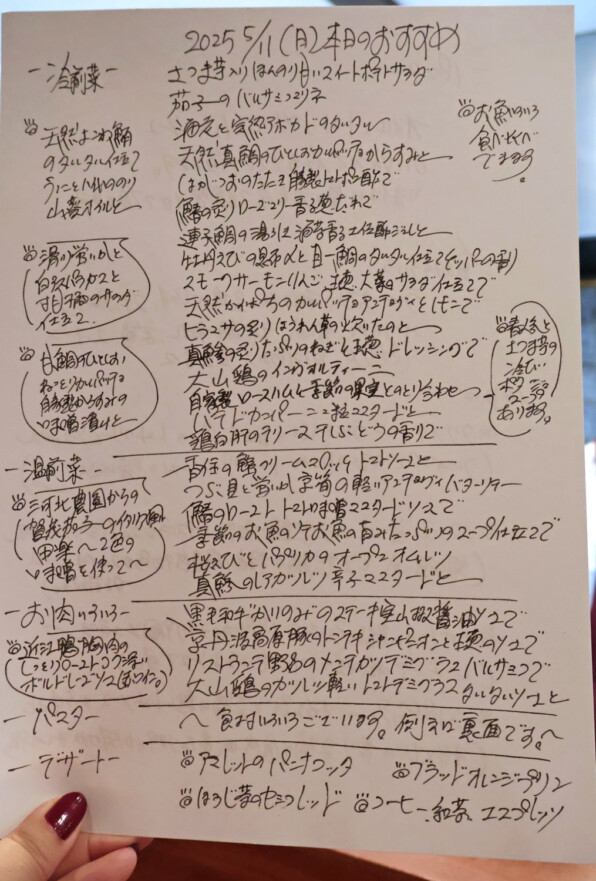 2025 5/11(日)本日のおすすめ
－冷前菜－
さつま芋入りほんのり甘いスイートポテトサラダ
茄子のバルサミコマリネ
完熟アボカドのタルタル
天然真鯛のひとしおカルパッチョからすみと
はがつおのたたき自家製トマトポン酢で
鰆の炙りローズマリー香る葱だれで
連子鯛の湯引き
牡丹えびの昆布〆と真鯛のタルタル仕立て
スモークサーモンりんご、大葉のサラダ仕立てで
天然かんぱちのカルパッチョアンチョヴィとレモンで
ヒラマサの炙りほうれん草の炊いたのと
真鯵の炙りたっぷりのねぎと
ドレッシングで
大山鶏のインヴォルティーニ
自家製ロースハムと季節の果実とのとり合わせ
パテドカンパーニュ粒マスタードと
鶏白肝のテリーヌ干しぶどうの香りで
お魚いろいろ
食べ比べ
できます。
天然よこわ鮪
のタルタル仕立て
山葵オイルと
湯引き蛍いかと
白ばい
のサラダ
仕立て
甘鯛のひとしお
ねっとりカルパッチョ
自家製からすみの
味噌漬けと
最後に
さつま芋の
冷たい
ポタージュ
スープ
あります。
－温前菜－
香住の蟹クリームコロッケトマトソースと
つぶ貝と蛍いか、筍の軽いアンチョヴィバターソテー
鰆のローストトマト味噌マスタードソースで
季節のお魚のソテお魚の旨みたっぷりのスープ仕立てで
桜えびとパプリカのオープンオムレツ
真鯵のレアカツレツ辛子マスタードと
三河北農園からの
賀茂茄子のイタリア風
田楽～2色の
味噌を使って～
－お肉いろいろ－
黒毛和牛かいのみのステーキ実山椒醤油ソースで
京丹波高原豚のトンテキシャンピニオンと葱のソースで
リストランテ野呂のメンチカツデミグラスバルサミコで
大山鶏のカツレツ軽いトマトデミグラスタルタルソースと
近江鴨胸肉の
しっとりローストコク深い
ボルドレーズソース(赤ワイン)
－パスタ－
～食材いろいろございます。例えば裏面です。～
－デザート－
アマレットのパンナコッタ
ブラッドオレンジプリン
ほうじ茶のセミフレッド
コーヒー、紅茶、エスプレッソ